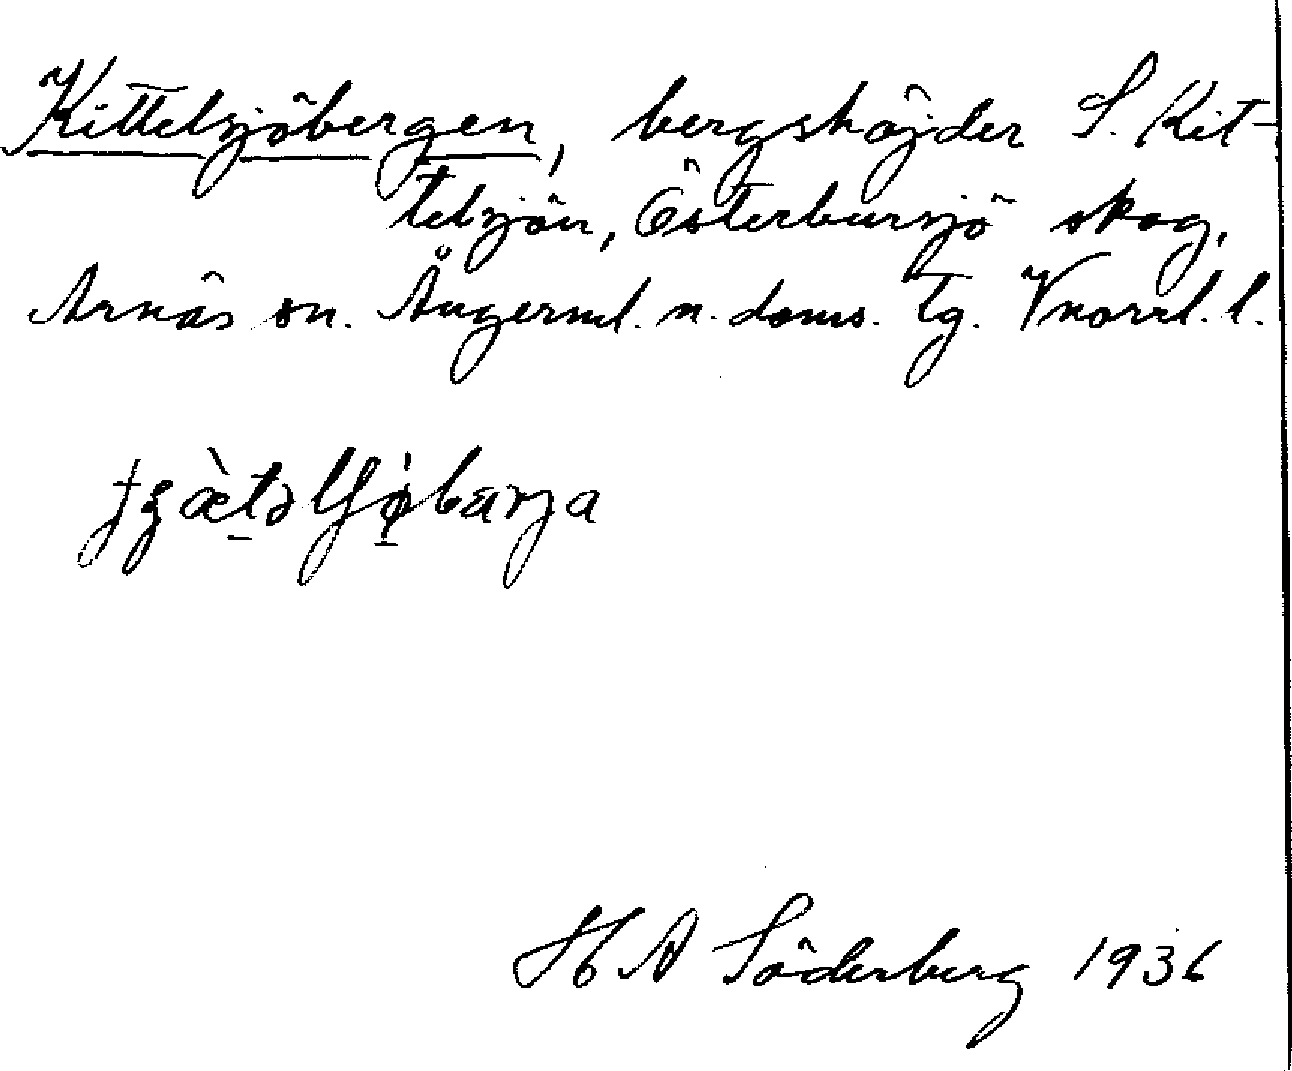 Kittelsjöbergen, bergshöjder S. Kit-
telsjön, Österbursjö skog,
Arnäs sn. Ångerml. n. doms. tg. Vnorrl. l.
H A Söderberg 1936